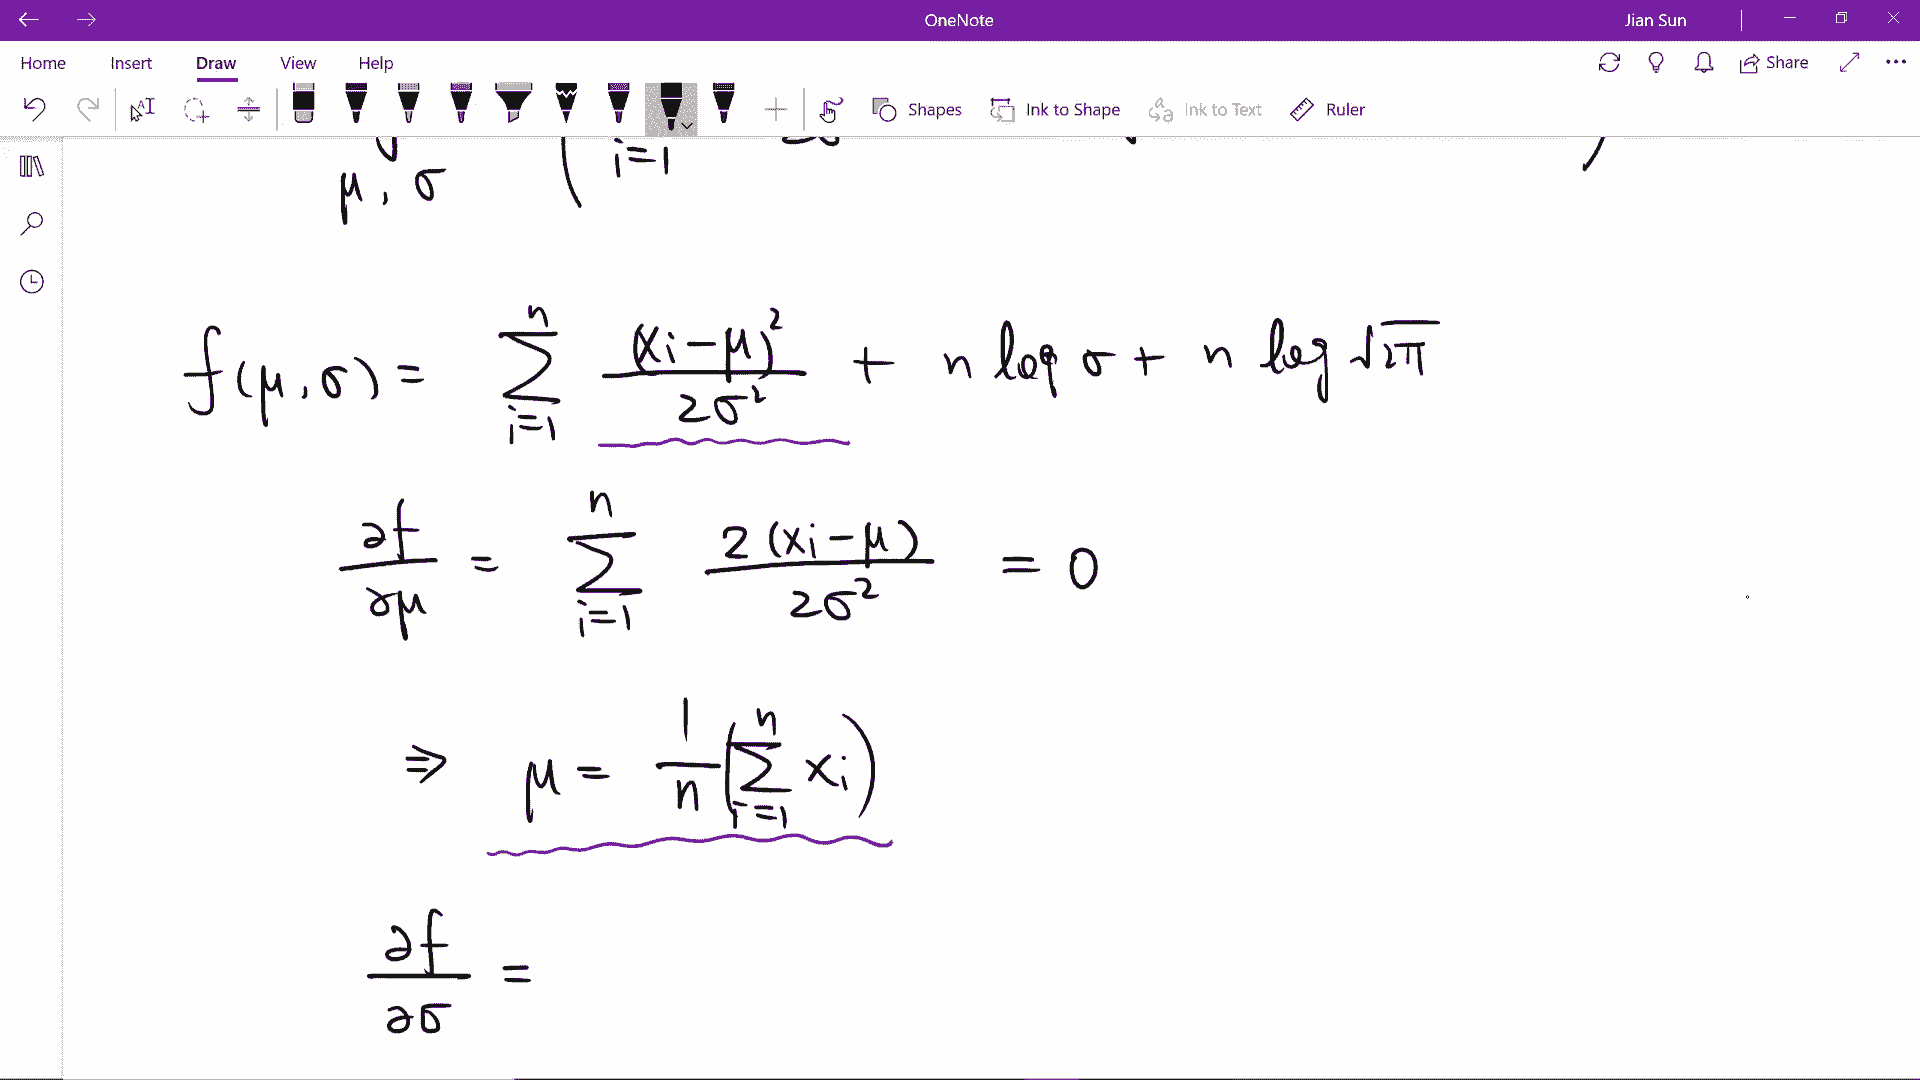 OneNote
Jian Sun
Home Insert Draw View Help
Share
Shapes Ink to Shape Ink to Text Ruler
μ, σ ( i=1 )
f(μ, σ) = ∑_{i=1}^{n} (xi − μ)² / 2σ² + n log σ + n log √2π
∂f/∂μ = ∑_{i=1}^{n} 2(xi − μ) / 2σ² = 0
⇒ μ = 1/n (∑_{i=1}^{n} xi)
∂f/∂σ =